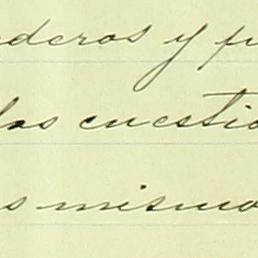 deros y fu
las cuestio
s mismo